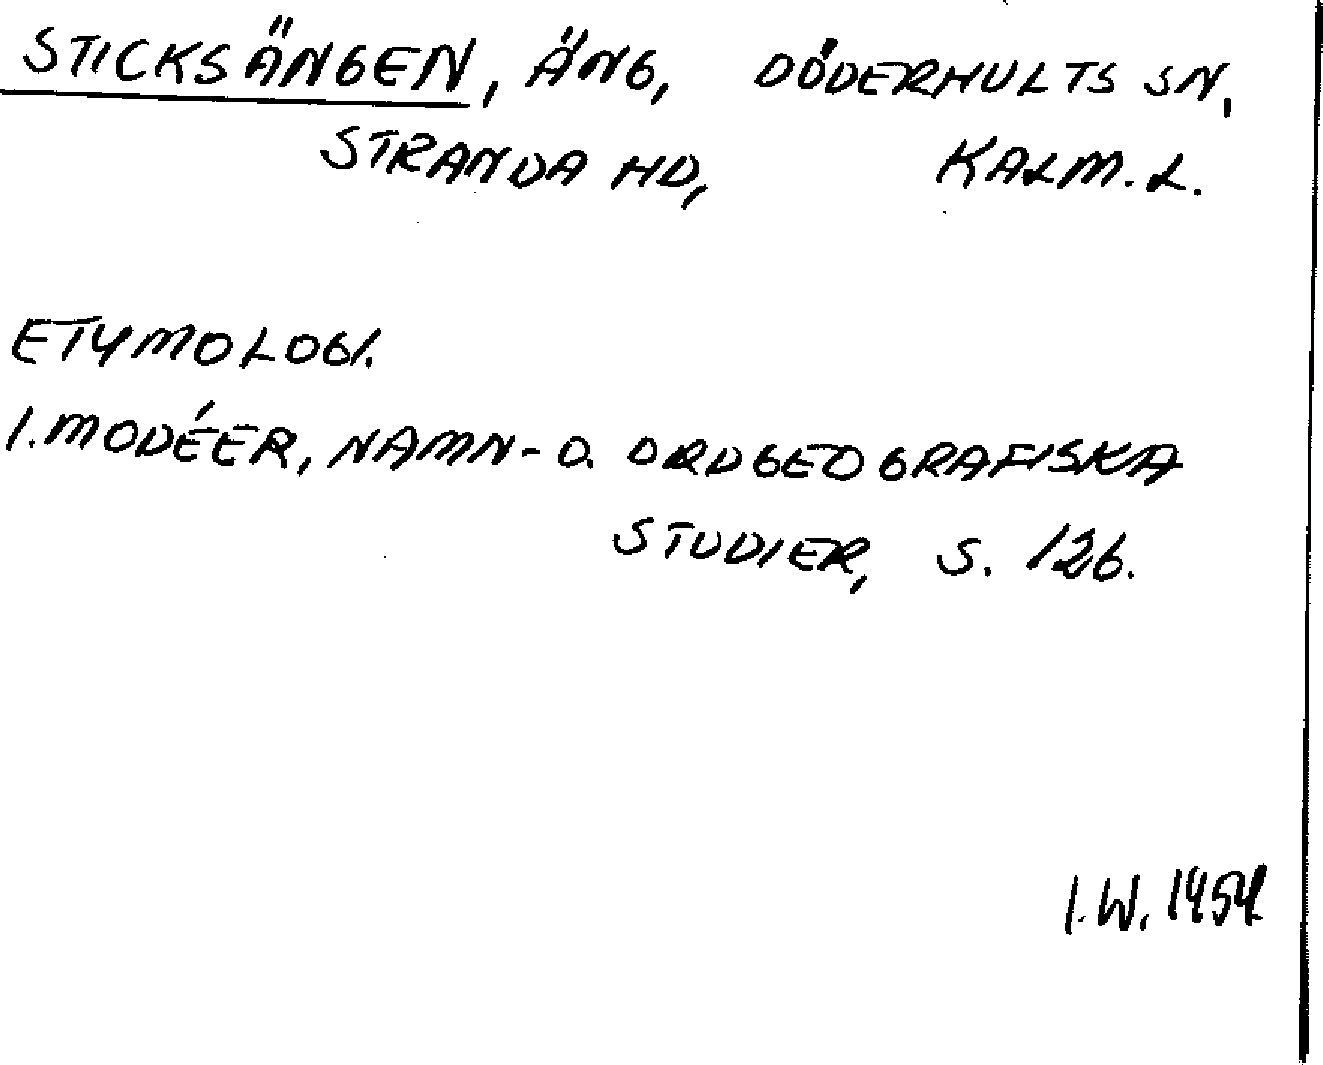 STICKSÄNGEN, ÄNG, DÖDERHULTS SN,
STRANDA HD, KALM. L.
ETYMOLOGI.
I. MODÉER, NAMN- O. ORDGEOGRAFISKA
STUDIER, S. 126.
I.W. 1954